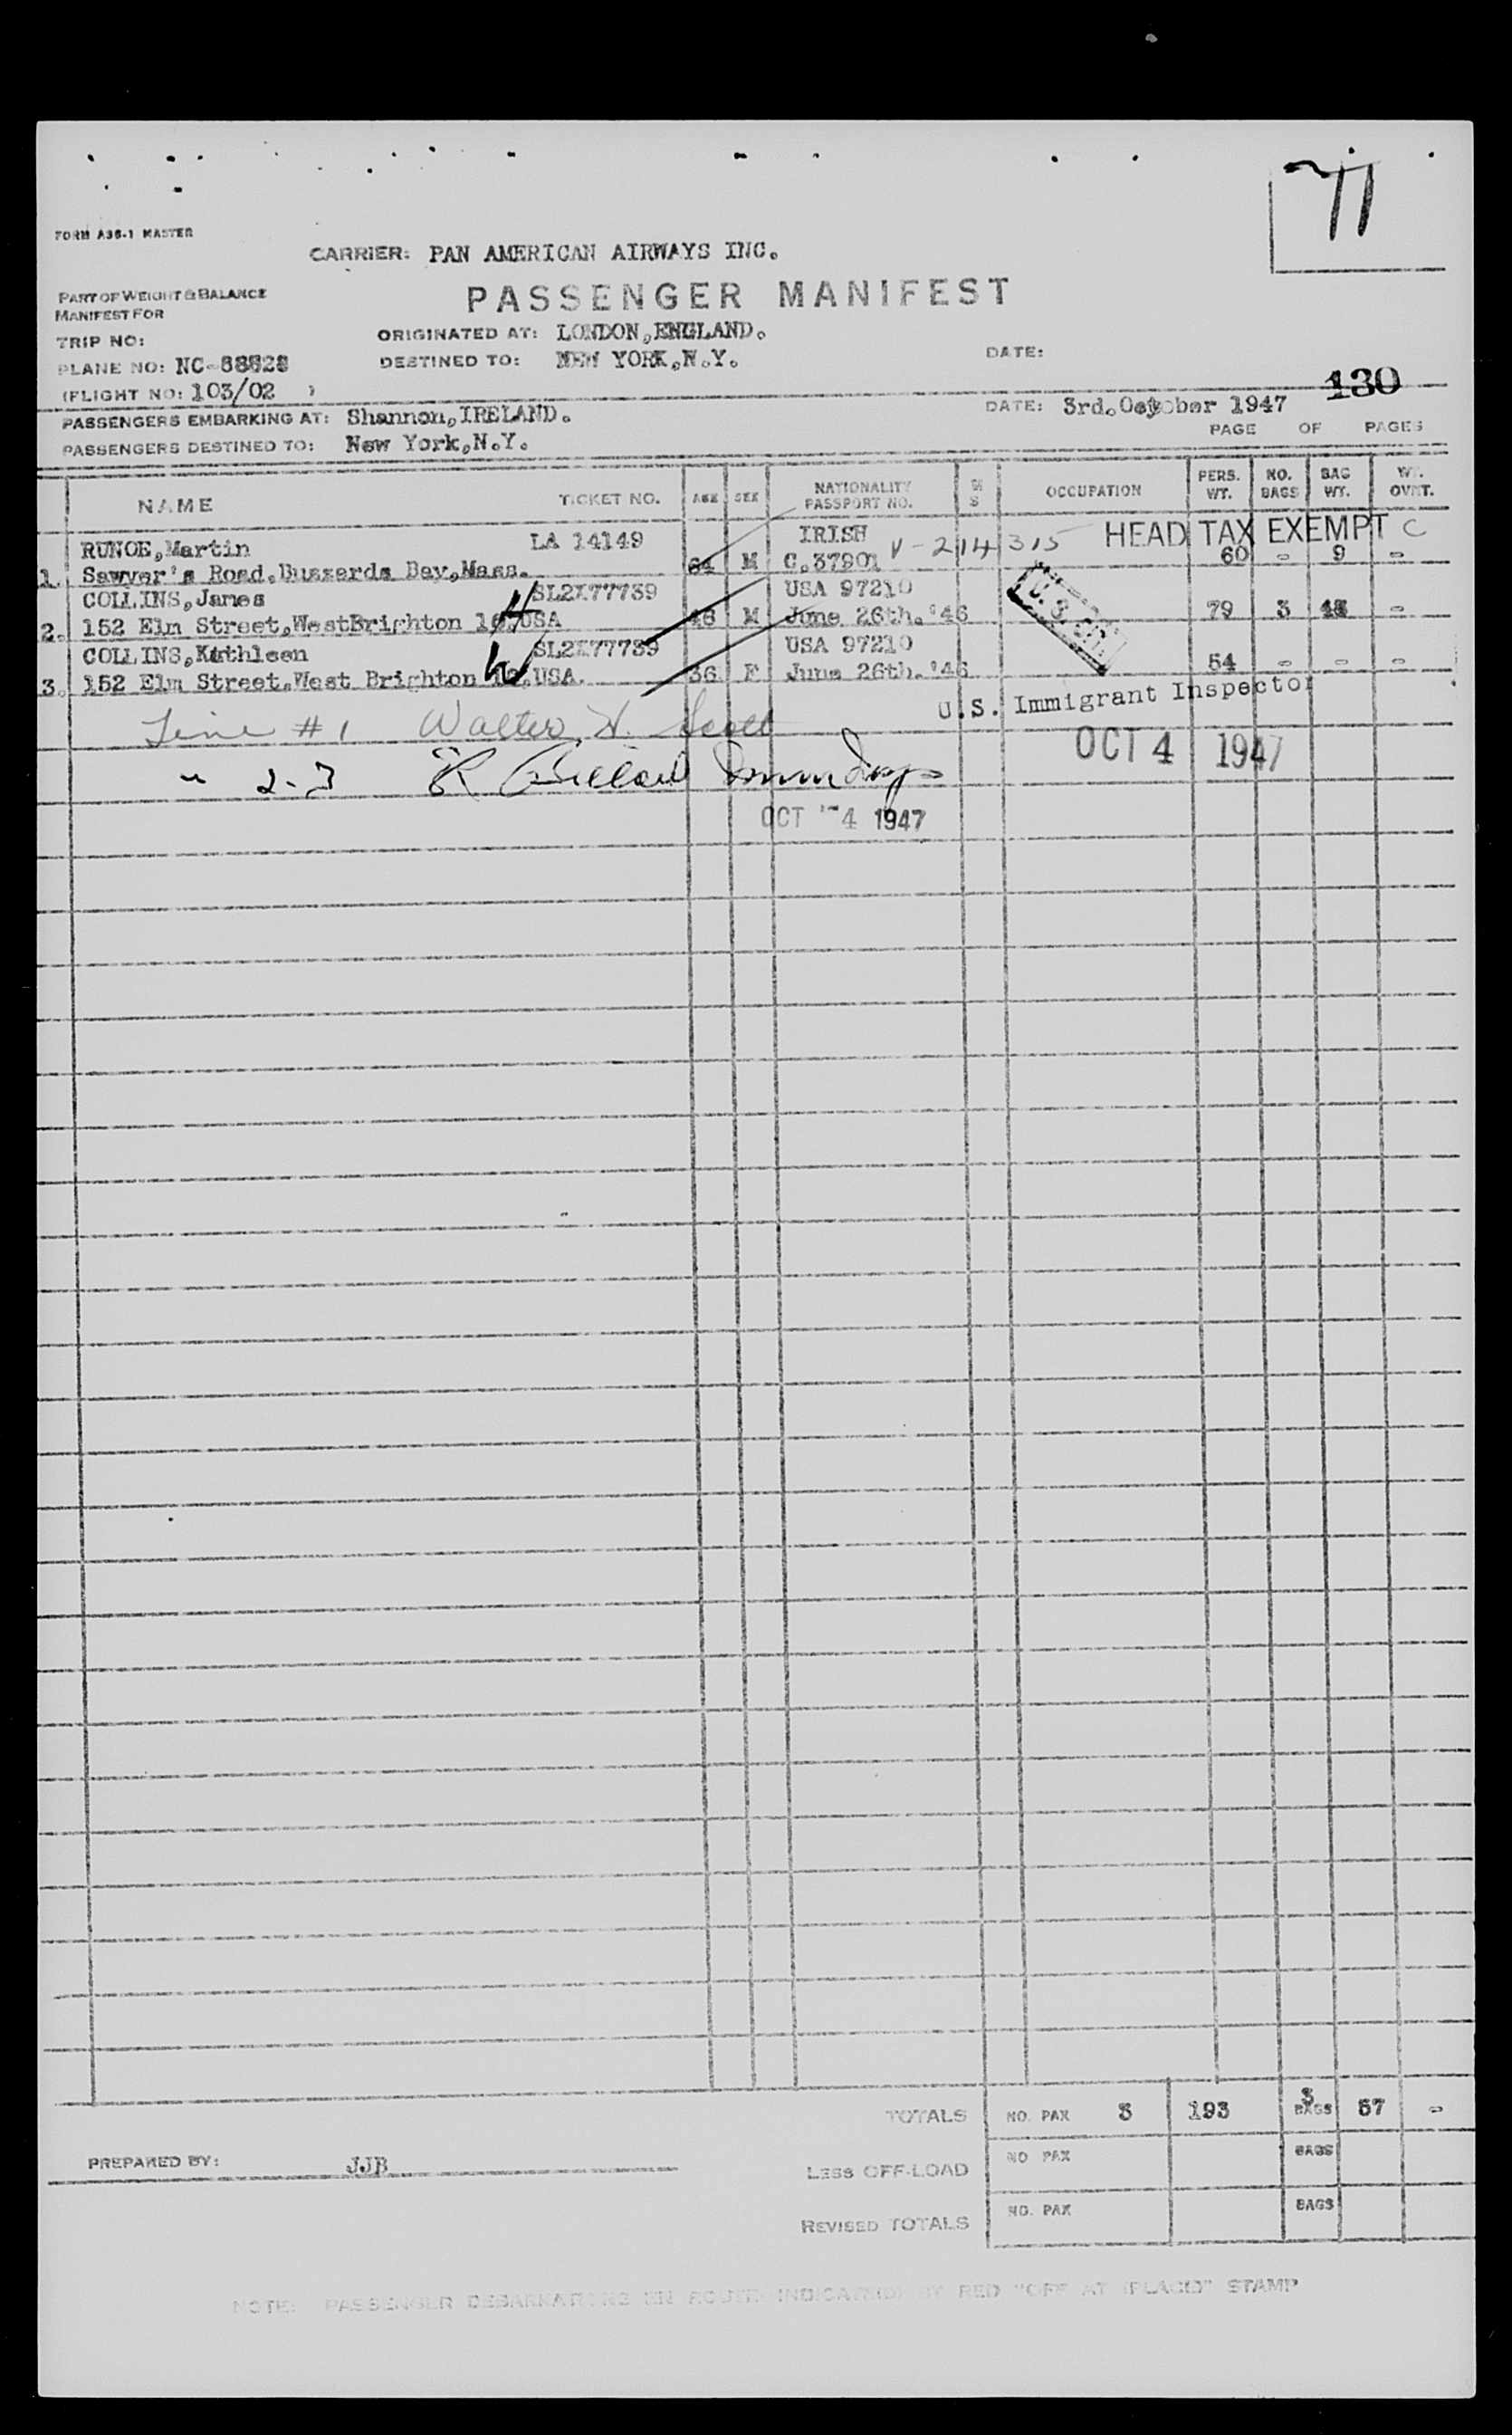 71
FORM A36-1 MASTER
CARRIER: PAN AMERICAN AIRWAYS INC.
PART OF WEIGHT & BALANCE
MANIFEST FOR
PASSENGER MANIFEST
TRIP NO:
ORIGINATED AT: LONDON,ENGLAND.
PLANE NO: NC-
DESTINED TO: NEW YORK,N.Y.
DATE:
(FLIGHT NO: 103/02 )
130
PASSENGERS EMBARKING AT: Shannon,IRELAND.
DATE: 3rd.October 1947
PAGE OF PAGES
PASSENGERS DESTINED TO: New York,N.Y.
NAME TICKET NO. AGE SEX NATIONALITY PASSPORT NO. OCCUPATION PERS. WT. NO. BAGS BAG WT. WT. OVWT.
RUNOE,Martin LA 14149 IRISH V-214315 HEAD TAX EXEMPT C
1. Sawyer's Road,Buzzerds Bay,Mass. 64 M C.37901 60 - 9 -
COLLINS,James SL2K77739 USA 97210
2. 152 Elm Street,WestBrighton USA 46 M June 26th.'46 79 3 48 -
COLLINS,Kathleen SL2K77739 USA 97210
3. 152 Elm Street,West Brighton USA. 36 F June 26th.'46 54 - - -
U.S. Immigrant Inspector
Line #1 Walter H. Scott
OCT 4 1947
" 2-3
OCT 4 1947
TOTALS NO. PAX 3 193 3 BAGS 57 -
PREPARED BY: JJB
LESS OFF-LOAD NO PAX BAGS
REVISED TOTALS NO. PAX BAGS
NOTE: PASSENGER DEBARKATIONS EN ROUTE INDICATED BY RED "OFF AT (PLACE)" STAMP